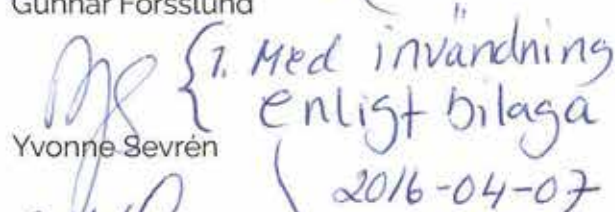 Gunnar Forsslund
1. Med invändning
enligt bilaga
Yvonne Sevrén
2016-04-07